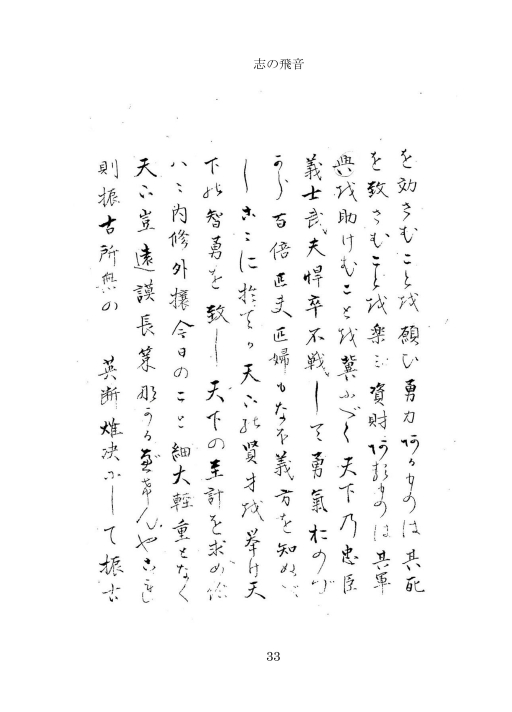 志の飛音
を効さむことを願ひ勇力あるものは其死
を致さむことを楽ミ資財あるものは其軍
興を助けむことを冀ふべく天下乃忠臣
義士武夫悍卒不戦して勇氣おのづ
から百倍匹夫匹婦もなほ義方を知るべ
しこゝに於てか天下の賢才を挙け天
下の智勇を致し天下の至計を求め給
ハゝ内修外攘今日のこと細大軽重となく
天下豈遠謨長策那かるべけんやこれ
則振古所無の 英断雄決にして振古
33